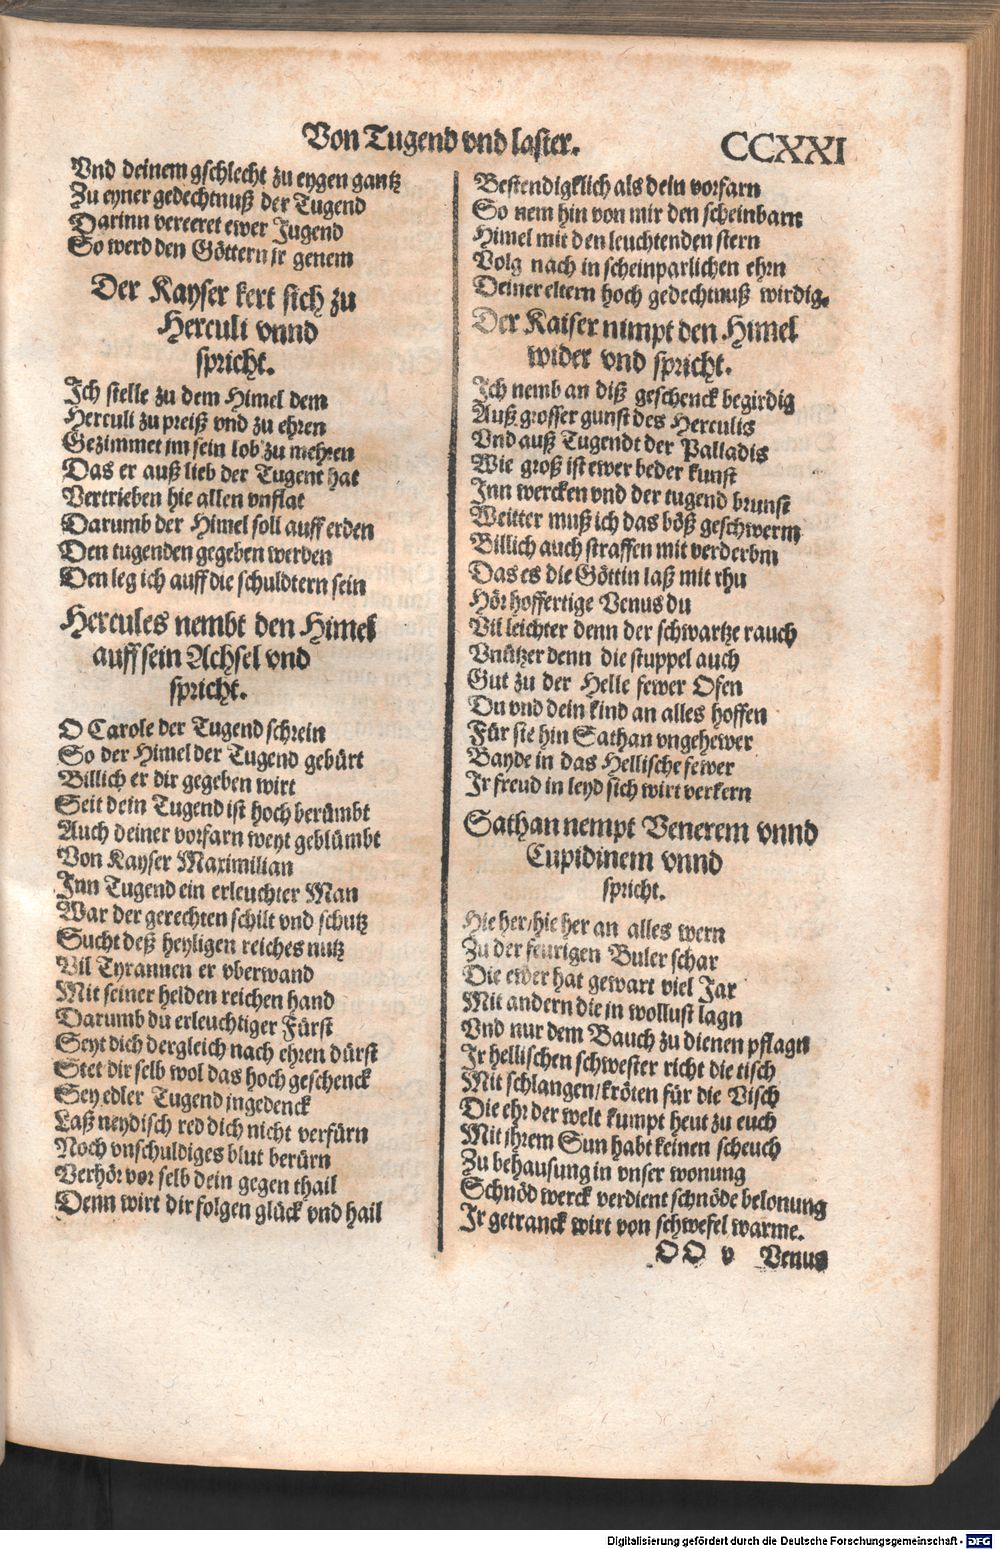 Von Tugend vnd laster.
CCXXI
Vnd deinem gschlecht zu eygen gantz
Zu eyner gedechtnuß der Tugend
Darinn vereeret ewer Jugend
So werd den Göttern jr genem
Der Kayser kert sich zu
Herculi vnnd
spricht.
Ich stelle zu dem Himel dem
Herculi zu preiß vnd zu ehren
Gezimmet jm sein lob zu mehren
Das er auß lieb der Tugent hat
Vertrieben hie allen vnflat
Darumb der Himel soll auff erden
Den tugenden gegeben werden
Den leg ich auff die schuldtern sein
Hercules nembt den Himel
auff sein Achsel vnd
spricht.
O Carole der Tugend schrein
So der Himel der Tugend gebürt
Billich er dir gegeben wirt
Seit dein Tugend ist hoch berümbt
Auch deiner vorfarn weyt geblümbt
Von Kayser Maximilian
Inn Tugend ein erleuchter Man
War der gerechten schilt vnd schutz
Sucht deß heyligen reiches nutz
Vil Tyrannen er vberwand
Mit seiner helden reichen hand
Darumb du erleuchtiger Fürst
Seyt dich dergleich nach ehren dürst
Stet dir selb wol das hoch geschenck
Sey edler Tugend ingedenck
Laß neydisch red dich nicht verfürn
Noch vnschuldiges blut berürn
Verhör vor selb dein gegen thail
Denn wirt dir folgen glück vnd hail
Bestendigklich als dein vorfarn
So nem hin von mir den scheinbarn
Himel mit den leuchtenden stern
Volg nach in scheinparlichen ehrn
Deiner eltern hoch gedechtnuß wirdig.
Der Kaiser nimpt den Himel
wider vnd spricht.
Ich nemb an diß geschenck begirdig
Auß grosser gunst des Herculis
Vnd auß Tugendt der Palladis
Wie groß ist ewer beder kunst
Inn wercken vnd der tugend brunst
Weitter muß ich das böß geschwerm
Billich auch straffen mit verderbm
Das es die Göttin laß mit rhu
Hör hoffertige Venus du
Vil leichter denn der schwartze rauch
Vnützer denn die stuppel auch
Gut zu der Helle fewer Ofen
Du vnd dein kind an alles hoffen
Für sie hin Sathan vngehewer
Bayde in das Hellische fewer
Ir freud in leyd sich wirt verkern
Sathan nempt Venerem vnnd
Cupidinem vnnd
spricht.
Hie her/hie her an alles wern
Zu der feurigen Buler schar
Die ewer hat gewart viel Jar
Mit andern die in wollust lagn
Vnd nur dem Bauch zu dienen pflagn
Ir hellischen schwester richt die tisch
Mit schlangen/kröten für die Visch
Die ehr der welt kumpt heut zu euch
Mit jhrem Sun habt keinen scheuch
Zu behausung in vnser wonung
Schnöd werck verdient schnöde belonung
Ir getranck wirt von schwefel warme.
OO v Venus
Digitalisierung gefördert durch die Deutsche Forschungsgemeinschaft - DFG